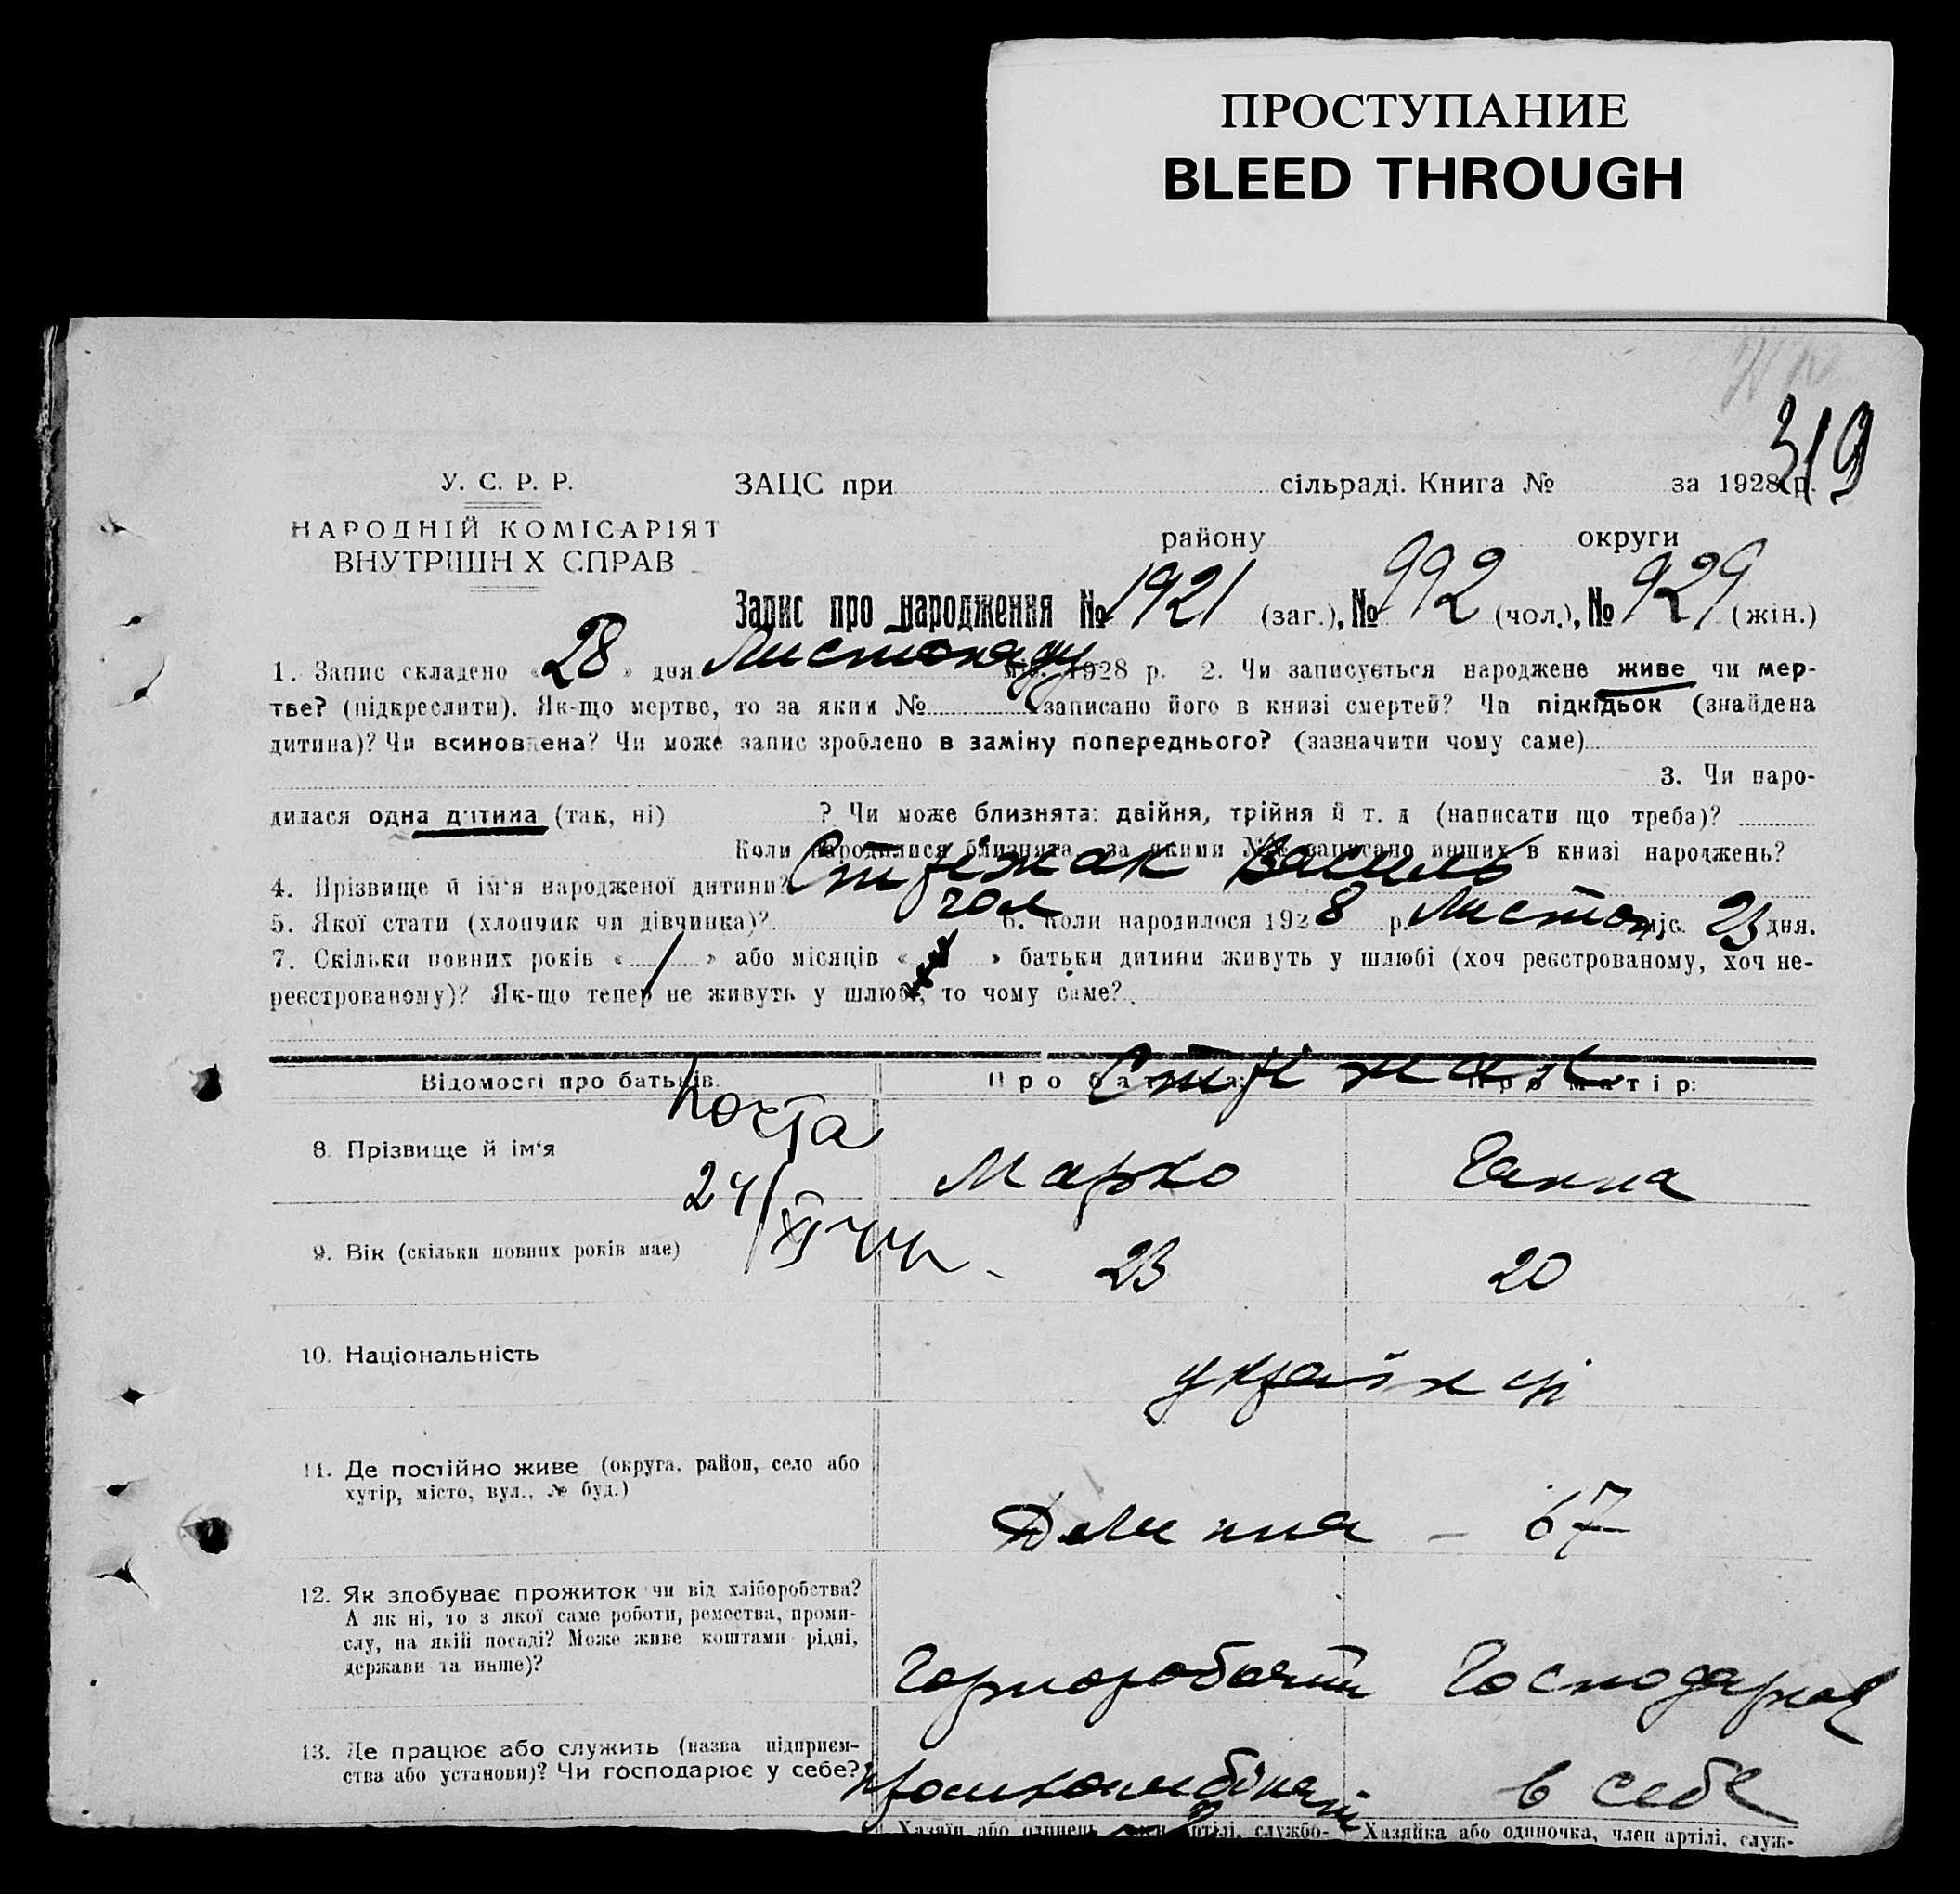 ПРОСТУПАНИЕ
BLEED THROUGH
319
У. С. Р. Р.
НАРОДНІЙ КОМІСАРІЯТ
ВНУТРІШН Х СПРАВ
ЗАЦС при сільраді. Книга № за 1928 р.
району округи
Запис про народження № 1921 (заг.), № 992 (чол.), № 929 (жін.)
1. Запис складено « 28 » дня Листопаду міс. 1928 р. 2. Чи записується народжене живе чи мер-
тве? (підкреслити). Як-що мертве, то за яким № записано його в книзі смертей? Чи підкідьок (знайдена
дитина)? Чи всиновлена? Чи може запис зроблено в заміну попереднього? (зазначити чому саме)
3. Чи наро-
дилася одна дитина (так, ні) ? Чи може близнята: двійня, трійня й т. д (написати що треба)?
Коли народилися близнята, за якими №№ записано инших в книзі народжень?
4. Прізвище й ім'я народженої дитини? Стрижак Василь
5. Якої стати (хлопчик чи дівчинка)? чол 6. Коли народилося 1928 р. Листоп міс. 23 дня.
7. Скільки повних років « 1 » або місяців « » батьки дитини живуть у шлюбі (хоч реєстрованому, хоч не-
реєстрованому)? Як-що тепер не живуть у шлюбі, то чому саме?
Відомості про батьків. Про батька: Про матір:
Стрижак
почта
8. Прізвище й ім'я Марко Ганна
24/XI 44р.
9. Вік (скільки повних років має) 23 20
10. Національність українці
11. Де постійно живе (округа, район, село або
хутір, місто, вул., № буд.)
67
12. Як здобуває прожиток чи від хліборобства?
А як ні, то з якої саме роботи, ремества, проми-
слу, на якій посаді? Може живе коштами рідні,
держави та инше)?
Чорноробочий Господарює
13. Де працює або служить (назва підприєм-
ства або установи)? Чи господарює у себе?
в себе
Хазяїн або одинець, член артілі, службо- Хазяйка або одиночка, член артілі, служ-